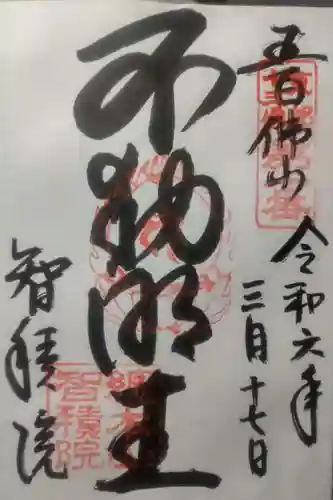 五百佛山
令和六年
三月十七日
不動明王
智積院
総本山
智積院